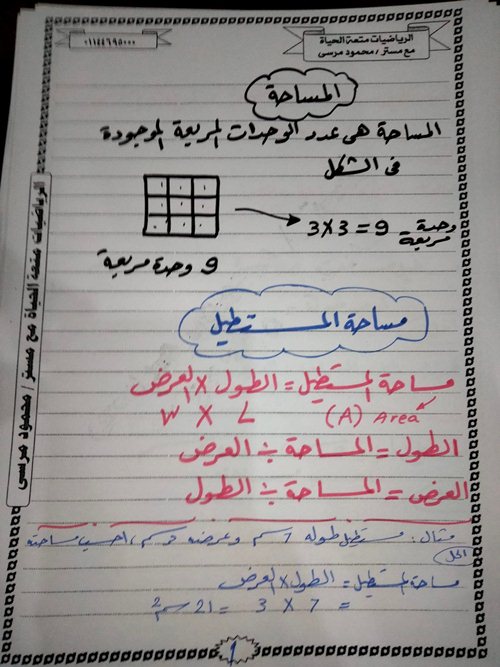 الرياضيات متعة الحياة
مع مستر / محمود مرسى
٠١١٤٤٦٩٥٠٠٠
المساحة
المساحة هى عدد الوحدات المربعة الموجودة
فى الشكل
3 X 3 = 9 وحدة مربعة
9 وحدة مربعة
مساحة المستطيل
مساحة المستطيل = الطول X العرض
(A) Area L X W
الطول = المساحة ÷ العرض
العرض = المساحة ÷ الطول
مثال : مستطيل طوله 7 سم وعرضه 3 سم ، احسب مساحته
الحل
مساحة المستطيل = الطول X العرض
= 7 X 3 = 21 سم2
1
الرياضيات متعة الحياة مع مستر / محمود مرسى